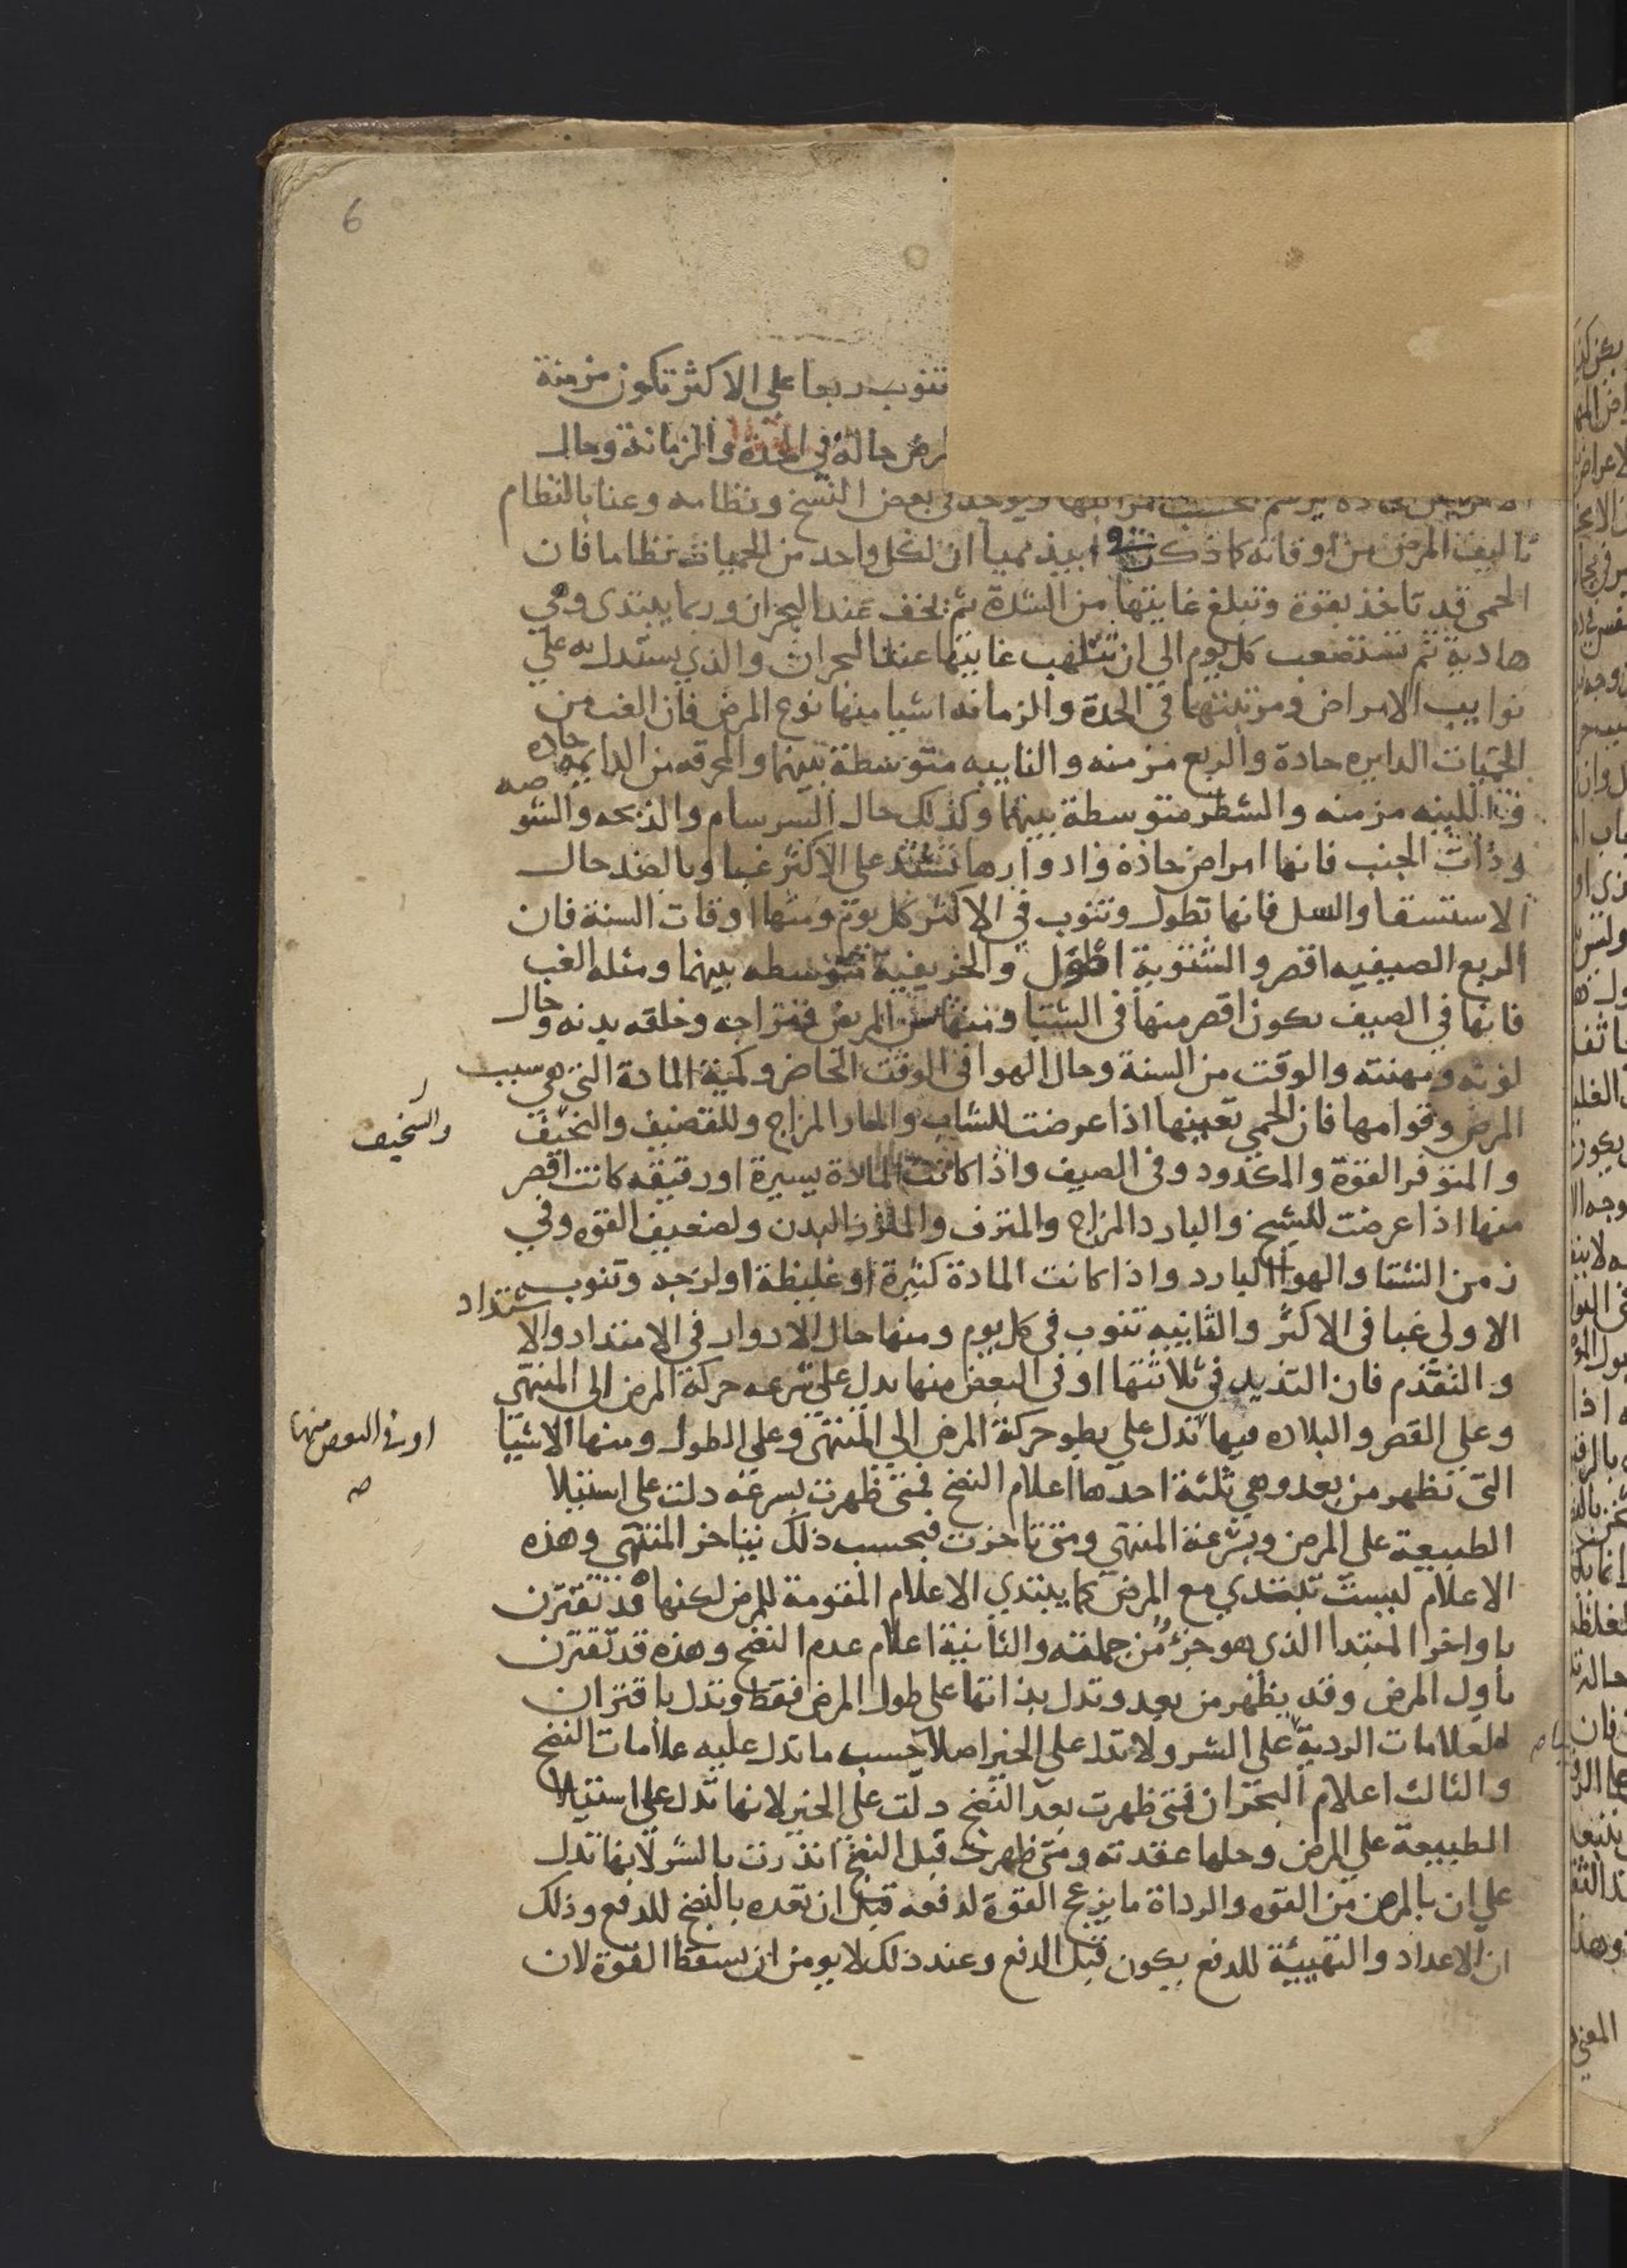 6
تنوب ربعا على الاكثر تكون مزمنة
حاله في الحدة والزمانة وحال
ويوجد في بعض النسخ ونظامه وعنا بالنظام
تاليف المرض من اوقاته كما ذكر ان لكل واحد من الحميات نظاما فان
الحمى قد تاخذ بقوة وتبلغ غايتها من الشدة ثم تخف عند البحران وربما يبتدى وهي
هادية ثم تستصعب كل يوم الي ان تلهب غايتها عند البحران والذي يستدل به علي
نوايب الامراض ومرتبتها في الحدة والزمانه اشيا منها نوع المرض فان الغب من
الحميات الدايره حادة والربع مزمنه والنايبه متوسطة بينهما والمحرقه من الدايمه حاده
واللينه مزمنه والشطر متوسطة بينهما وكذلك حال السرسام والذبحه والشو صه
وذات الجنب فانها امراض حادة وادوارها تشتد على الاكثر غبا وبالضد حال
الاستسقا والسل فانها تطول وتنوب في الاكثر كل يوم ومنها اوقات السنة فان
الربع الصيفيه اقصر والشتوية اطول والخريفية متوسطه بينهما ومثله الغب
فانها في الصيف يكون اقصر منها في الشتا ومنها سن المريض ومزاجه وخلقه بدنه وحال
لونه ومهنته والوقت من السنة وحال الهوا في الوقت الحاضر وكمية المادة التي هي سبب
المرض وقوامها فان الحمي بعينها اذا عرضت للشاب والحار المزاج وللقضيف والنحيف
والسخيف
والمتوفر القوة والمكدود وفي الصيف واذا كانت المادة يسيرة او رقيقه كانت اقصر
منها اذا عرضت للشيخ والبارد المزاج والمترف والملزز البدن ولضعيف القوه وفي
زمن الشتا والهوا البارد واذا كانت المادة كثيرة او غليظة او لزجه وتنوب
الاولي غبا في الاكثر والثانيه تنوب في كل يوم ومنها حال الادوار في الامتداد والا شتداد
والتقدم فان التزيد في ثلاثتها او في البعض منها يدل على سرعه حركة المرض الى المنتهي
وعلي القصر والبلاده فيها تدل علي بطو حركة المرض الي المنتهى وعلي الطول ومنها الاشيا
او في البعض منها
صح
التى تظهر من بعد وهي ثلثة احدها اعلام النضج فمتى ظهرت بسرعه دلت على استيلا
الطبيعة على المرض وبسرعة المنتهي ومتى تاخرت فبحسب ذلك يتاخر المنتهي وهذه
الاعلام ليست تبتدي مع المرض كما يبتدي الاعلام المقومة للمرض لكنها قد تقترن
باواخر المبتدا الذي هو جزء من جملته والثانية اعلام عدم النضج وهذه قد تقترن
باول المرض وقد يظهر من بعد وتدل بذاتها على طول المرض فقط وتدل باقتران
العلامات الردية على الشر ولا تدل علي الخير اصلا حسب ما تدل عليه علامات النضج
والثالث اعلام البحران فمتى ظهرت بعد النضج دلت على الخير لانها تدل علي استيلا
الطبيعة علي المرض وحلها عقدته ومتى ظهرت قبل النضج انذرت بالشر لانها تدل
علي ان بالمرض من القوه والرداة ما يزعج القوة لدفعه قبل ان تعده بالنضج للدفع وذلك
ان الاعداد والتهيية للدفع يكون قبل الدفع وعند ذلك لا يومن ان يسقط القوة لان